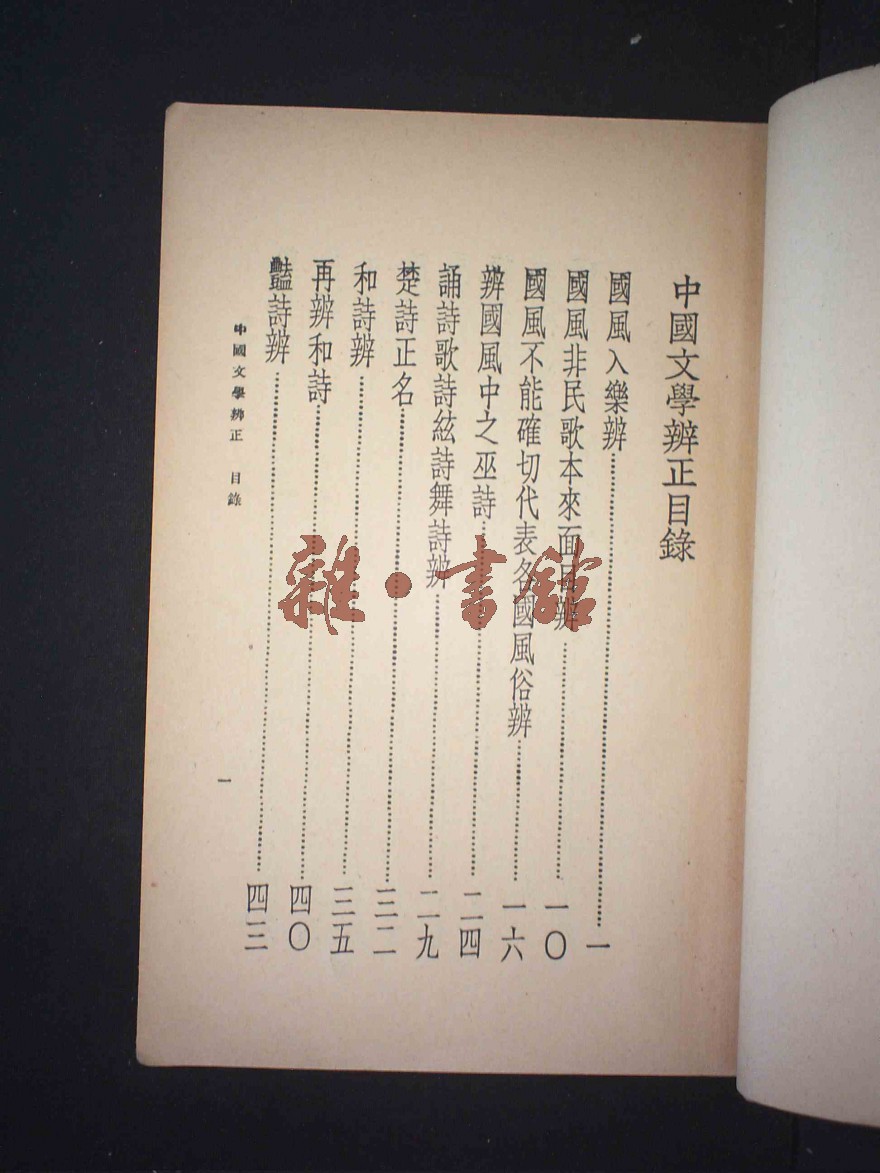 中國文學辨正目錄
國風入樂辨……一
國風非民歌本來面目辨……一〇
國風不能確切代表各國風俗辨……一六
辨國風中之巫詩……二四
誦詩歌詩絃詩舞詩辨……二九
楚詩正名……三二
和詩辨……三五
再辨和詩……四〇
豔詩辨……四三
中國文學辨正 目錄
一
雜·書館